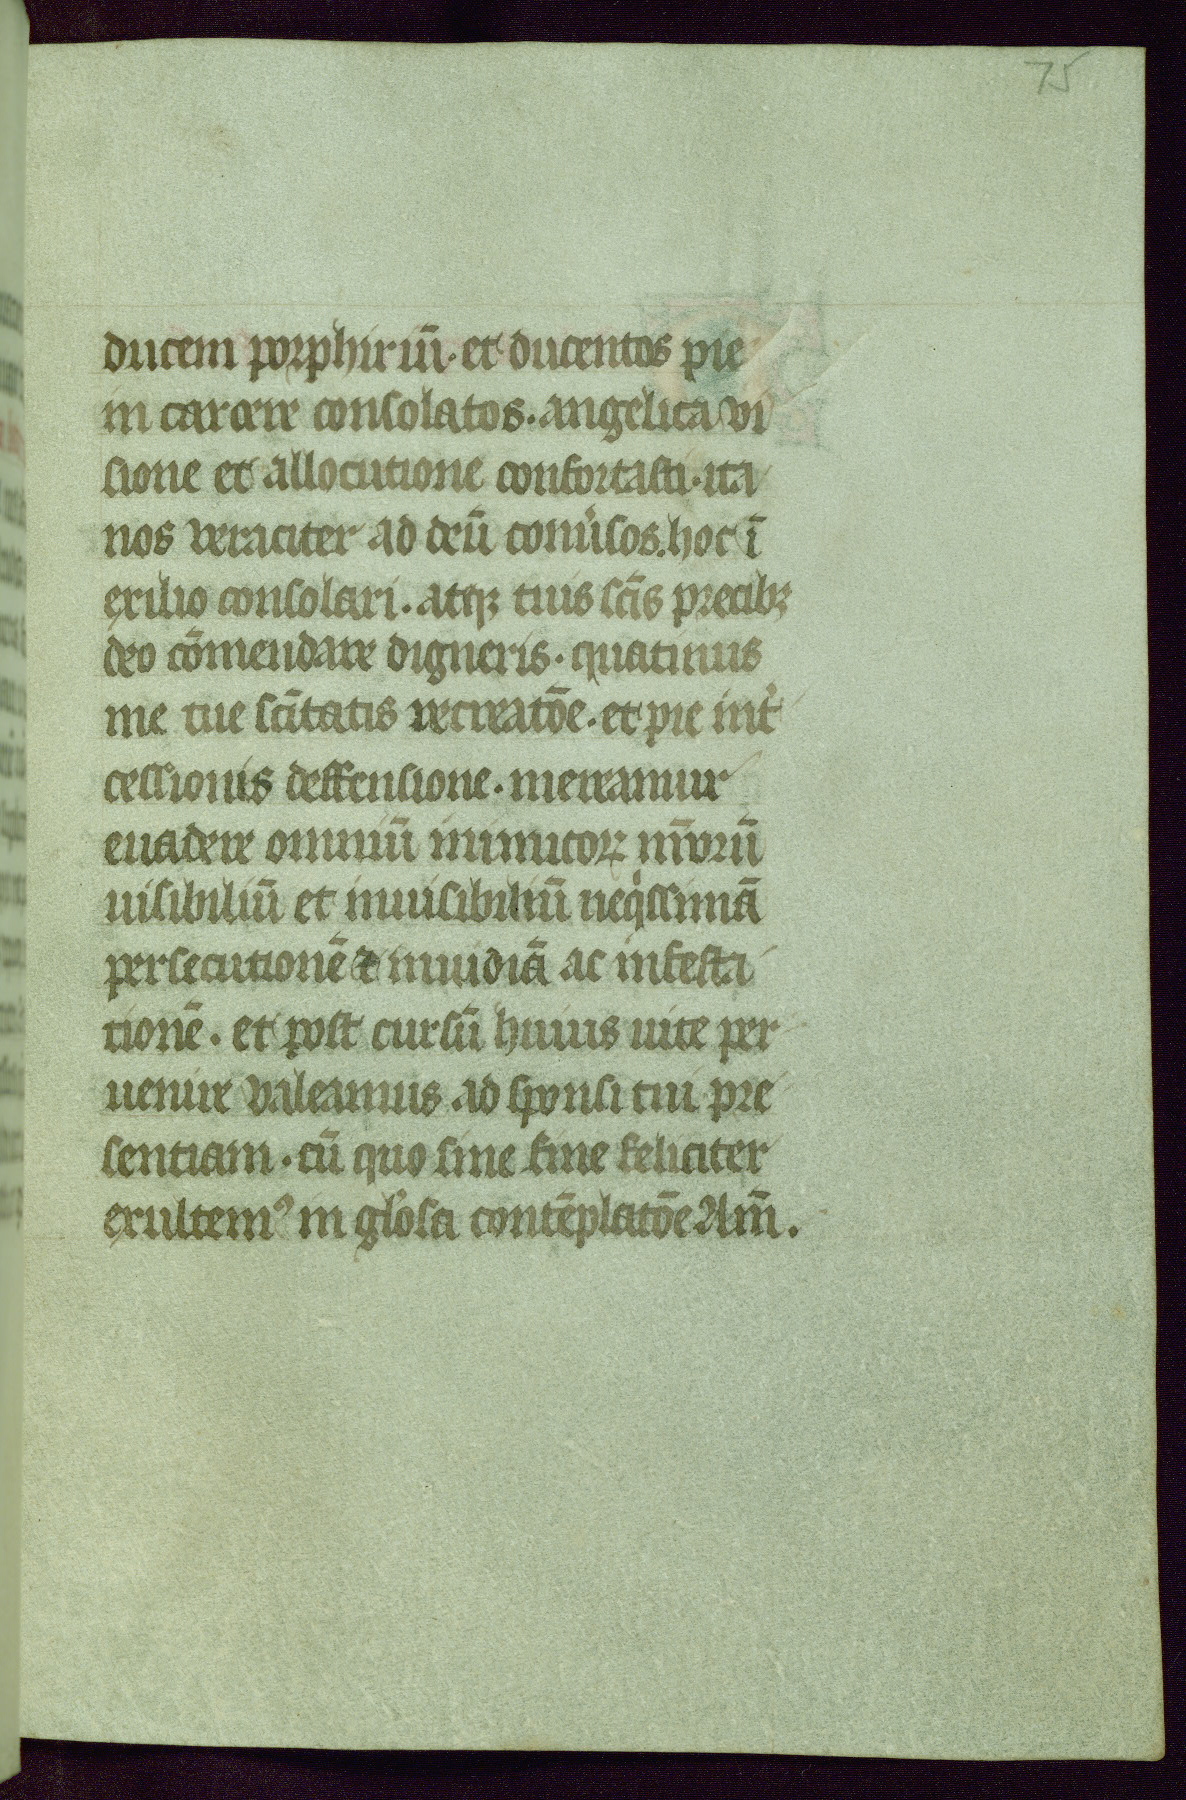 75
ducem porphiriū. et ducentos pie
in carcere consolatos. angelica vi
sione et allocutione confortasti. ita
nos veraciter ad deū conu͛sos. hoc ī
exilio consolari. atqꝫ tuis scīs precibꝫ
deo cōmendare digneris. quatinus
me tue scītatis recreatōe. et pie int͛
cessionis deffensione. mereamur
euadere omniū inimicoꝝ nr̄orū
uisibiliū et inuisibiliū neqͥssimā
persecutionē ⁊ inuidiā ac infesta
tionē. et post cursū huius uite per
uenire valeamus ad sponsi tui pre
sentiam. cū quo sine fine feliciter
exultemꝰ in gl̓osa contēplatōe Am̄.